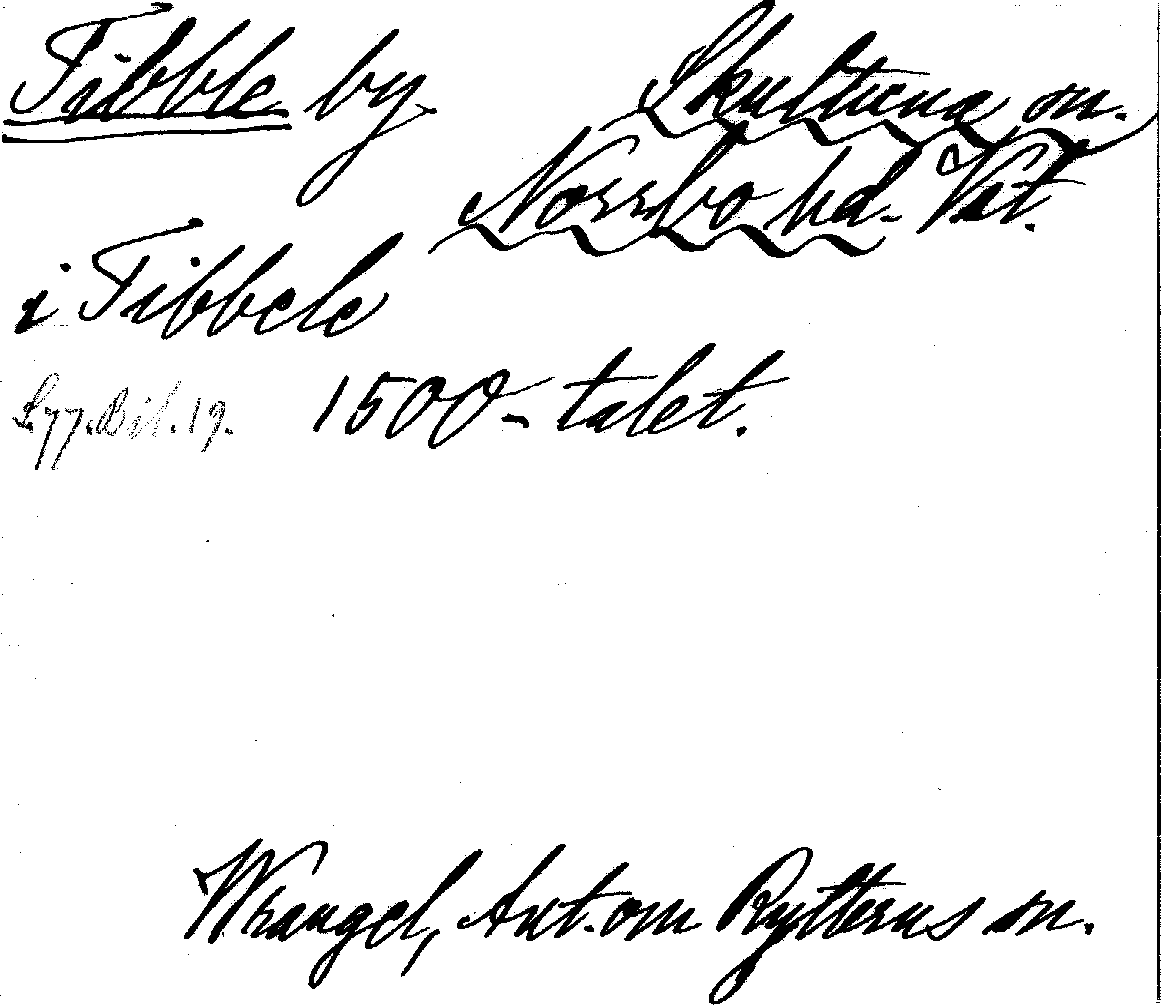 Tibble by Skultuna sn.
Norrbo hd. Väst.
i Tibbele
Bil. 19. 1500-talet.
Wrangel, Ant. om Rytterns sn.